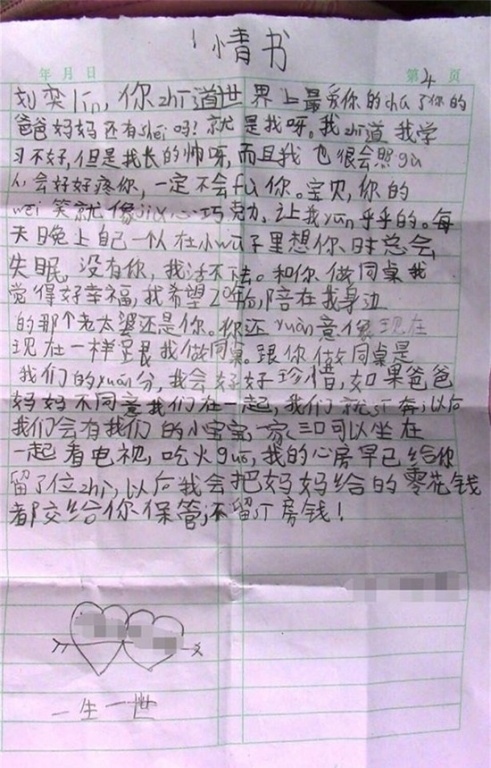 情书
年 月 日
第 4 页
刘奕lin，你zhi道世界上最爱你的chu了你的
爸爸妈妈还有shei吗！就是我呀。我zhi道我学
习不好，但是我长的帅呀，而且我也很会照gu
人会好好疼你，一定不会fu你。宝贝，你的
wei笑就像jia心巧克力，让我yun乎乎的。每
天晚上自己一个人在小wu子里想你、时总会
失眠，没有你，我活不下去。和你做同桌我
觉得好幸福，我希望20年后，陪在我身边
的那个老太婆还是你。你还yuàn意像现在
现在一样呈跟我做同桌。跟你做同桌是
我们的yuán分，我会好好珍惜，如果爸爸
妈妈不同意我们在一起，我们就si奔；以后
我们会有我们的小宝宝，一家三口可以坐在
一起看电视，吃火guo，我的心房早已给你
留了位zhi，以后我会把妈妈给的零花钱
都交给你保管，不留si房钱！
一生一世